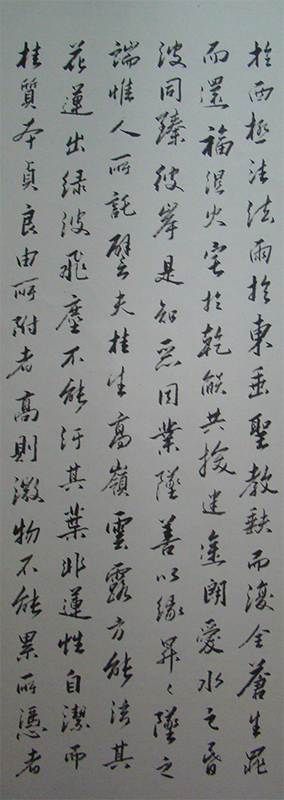 於西極注法雨於東垂聖教缺而復全蒼生罪
而還福濕火宅於乾燄共拔迷塗朗愛水之昏
波同臻彼岸是知惡因業墜善以緣昇々墜之
端惟人所託譬夫桂生高嶺雲露方能泫其
花蓮出綠波飛塵不能汙其葉非蓮性自潔而
桂質本貞良由所附者高則微物不能累所憑者